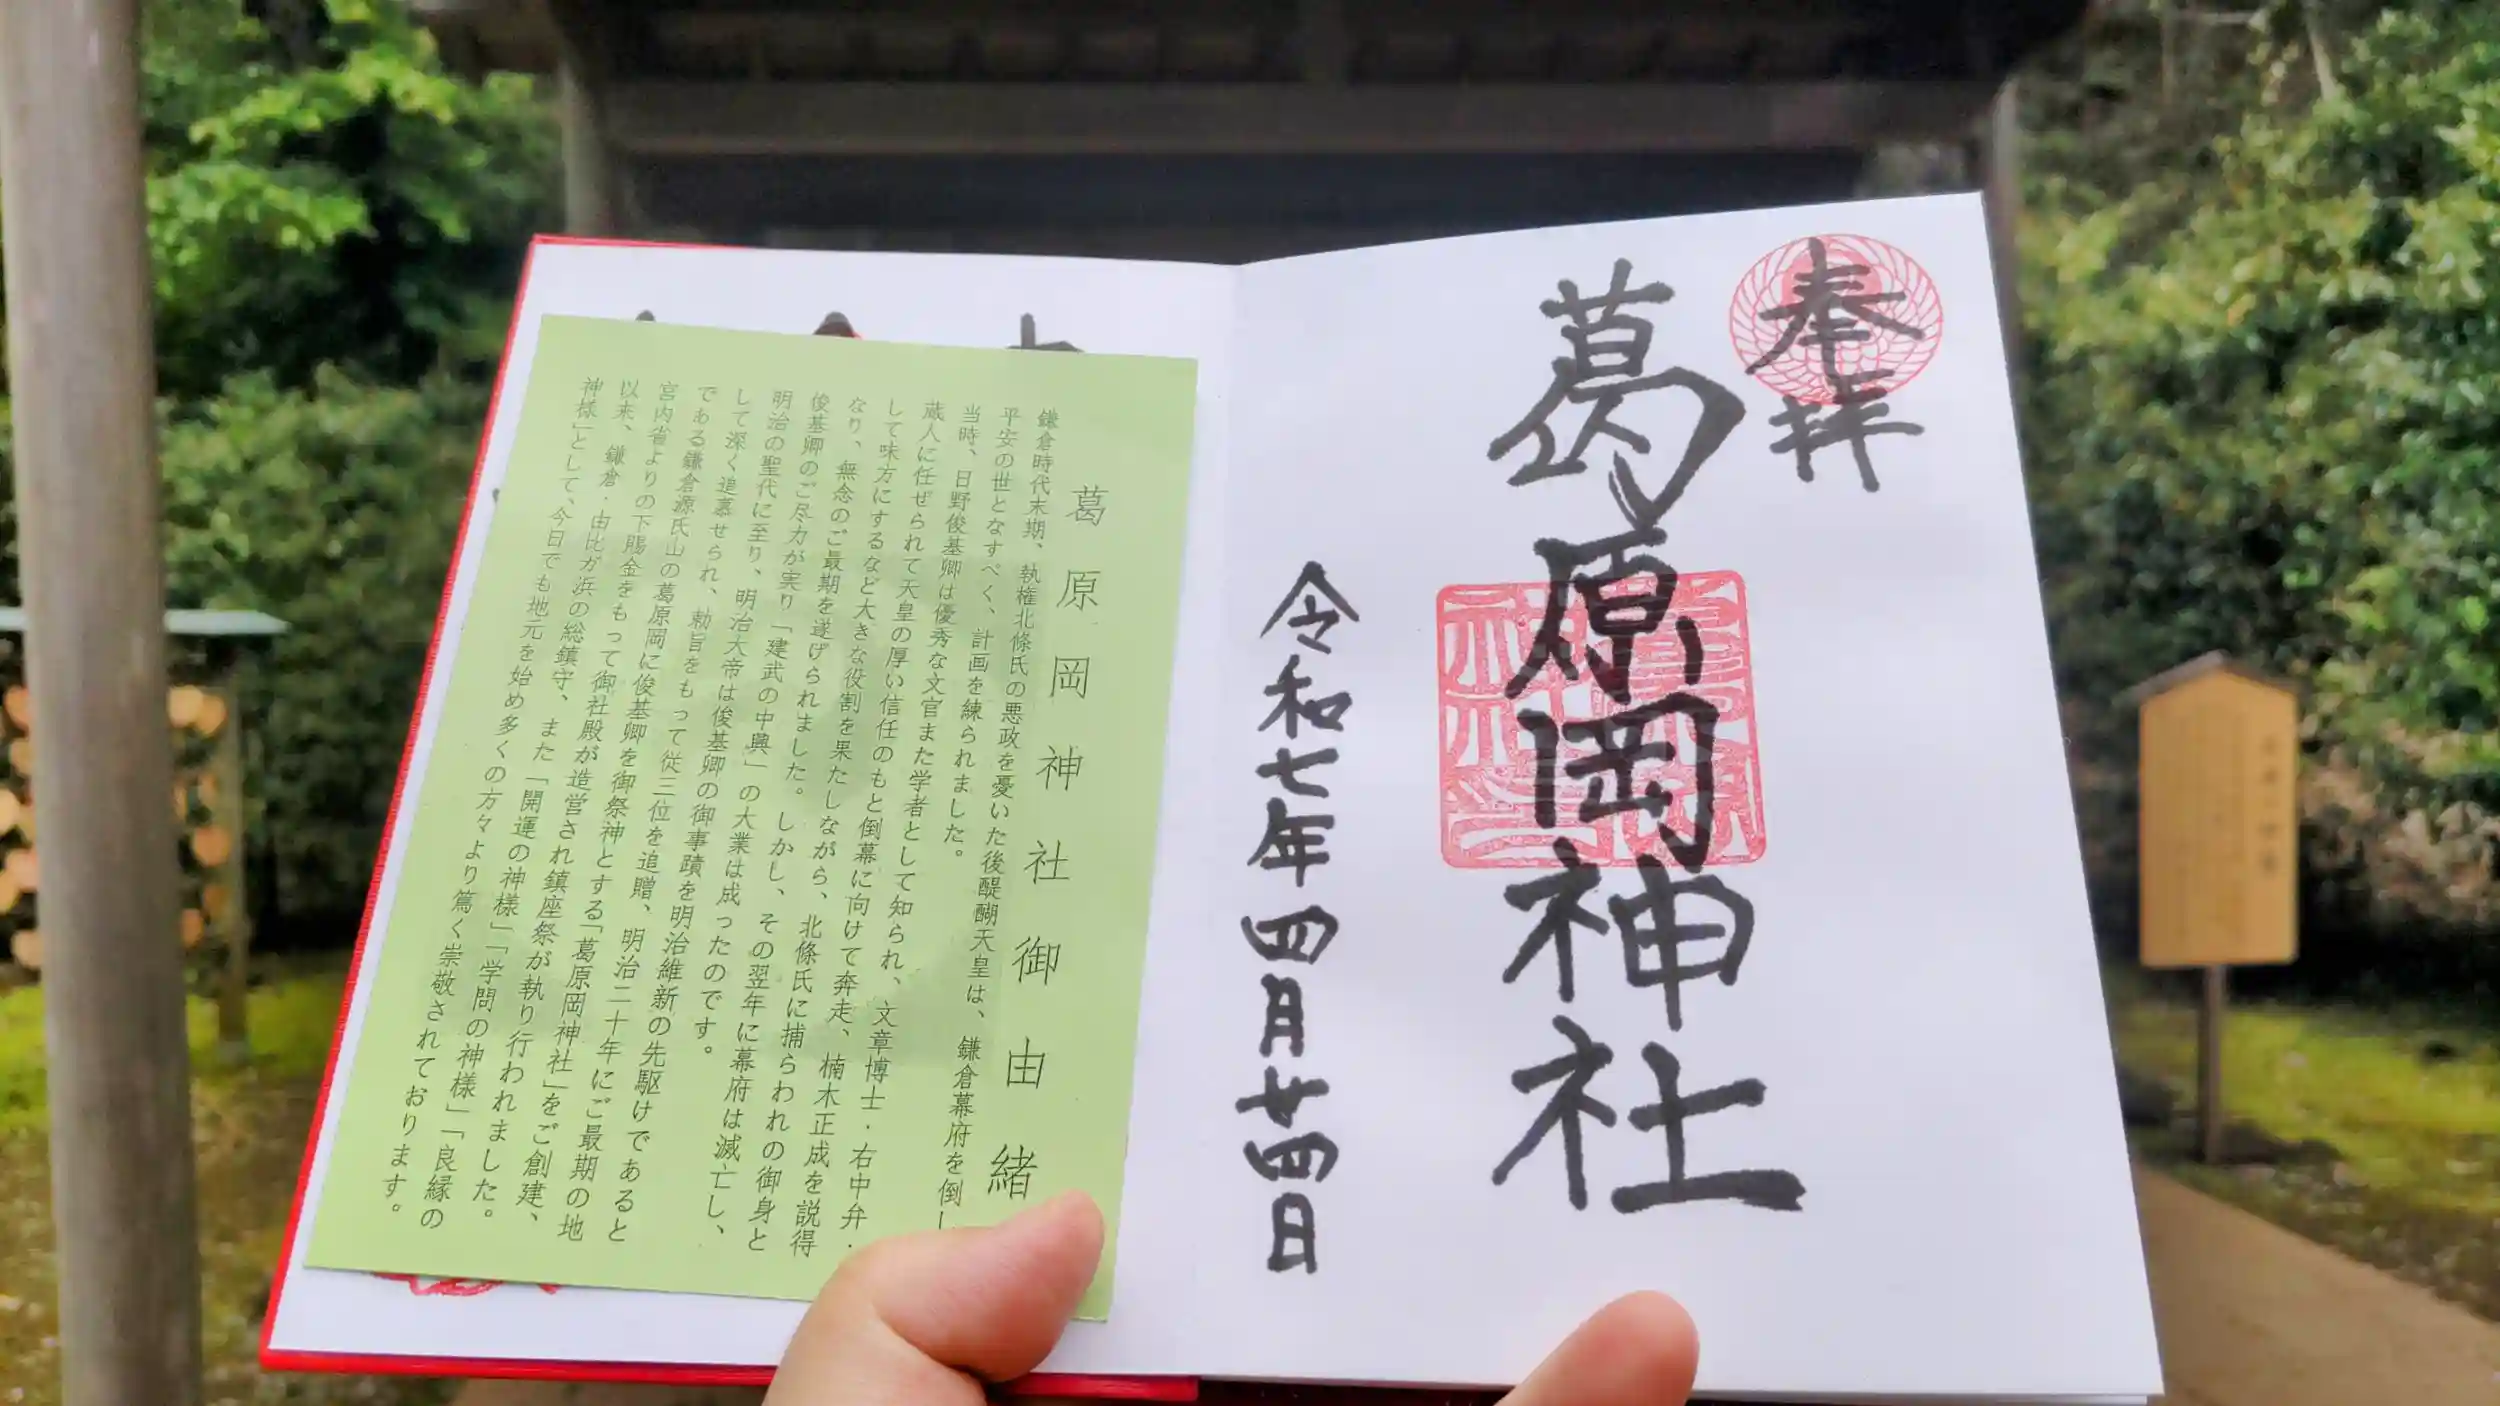 奉拝
葛原岡神社
令和七年四月廿四日
葛原岡神社御由緒
鎌倉時代末期、執権北條氏の悪政を憂いた後醍醐天皇は、鎌倉幕府を倒し
平安の世となすべく、計画を練られました。
当時、日野俊基卿は優秀な文官また学者として知られ、文章博士・右中弁・
蔵人に任ぜられて天皇の厚い信任のもと倒幕に向けて奔走、楠木正成を説得
して味方にするなど大きな役割を果たしながら、北條氏に捕らわれの御身と
なり、無念のご最期を遂げられました。しかし、その翌年に幕府は滅亡し、
俊基卿のご尽力が実り「建武の中興」の大業は成ったのです。
明治の聖代に至り、明治大帝は俊基卿の御事蹟を明治維新の先駆けであると
して深く追慕せられ、勅旨をもって従三位を追贈、明治二十年にご最期の地
である鎌倉源氏山の葛原岡に俊基卿を御祭神とする「葛原岡神社」をご創建、
宮内省よりの下賜金をもって御社殿が造営され鎮座祭が執り行われました。
以来、鎌倉・由比ガ浜の総鎮守、また「開運の神様」「学問の神様」「良縁の
神様」として、今日でも地元を始め多くの方々より篤く崇敬されております。